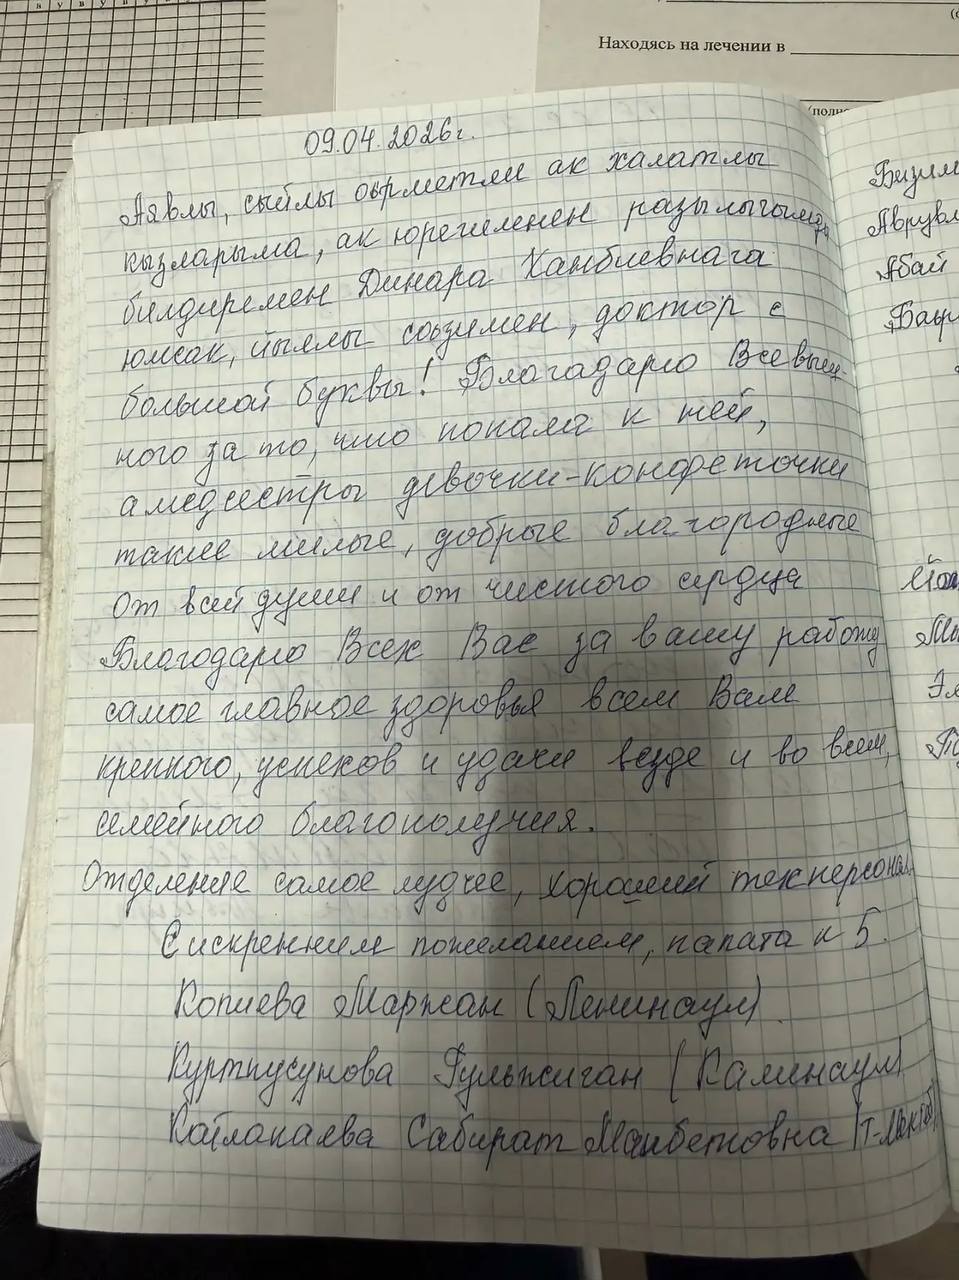 Находясь на лечении в
09.04.2026г.
Аявлы, сыйлы оьрметли ак халатлы
кызларыма, ак юрегимнен разылыгымды
билдиремен Динара Ханбиевнага
юмсак, йылы соьзимен, доктор с
большой буквы! Благадарю Всевыш-
него за то, что попала к ней,
а медсестры девочки-конфеточки
такие милые, добрые благородные
От всей души и от чистого сердца
Благодарю Всех Вас за вашу работу
самое главное здоровья всем Вам
крепкого, успехов и удачи везде и во всем,
семейного благополучия.
Отделение самое лучшее, хороший техперсонал.
С искренним пожеланием, палата н 5.
Копиева Маржан (Ленинаул)
Куртпусунова Гульжиган (Калинаул)
Кайлакаева Сабират Манбетовна
Бизим
Абай